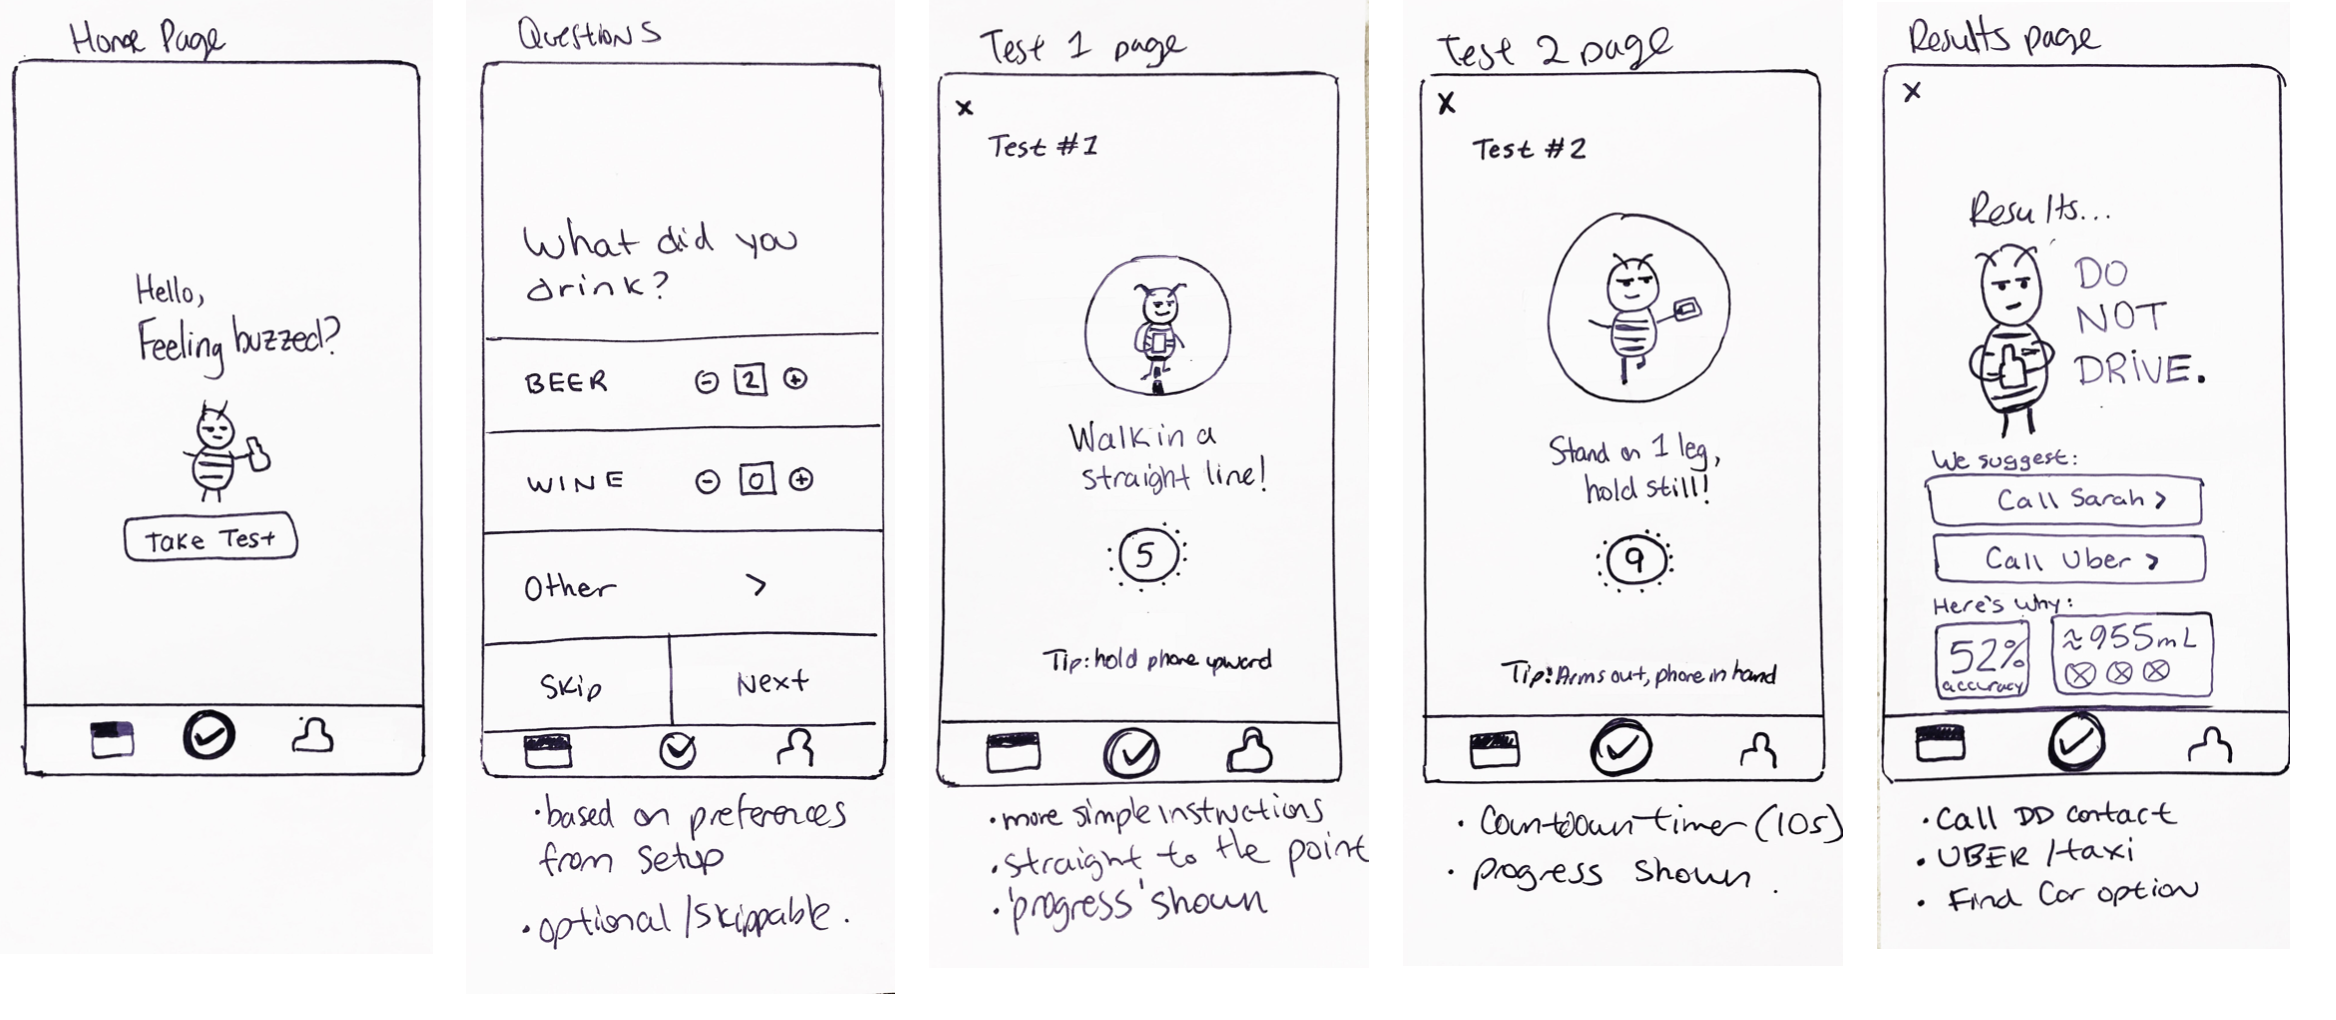 Home Page
Hello,
Feeling buzzed?
Take Test
Questions
What did you
drink?
BEER 2
WINE 0
Other >
Skip Next
•based on preferences
from Setup
•optional/skippable.
Test 1 page
x
Test #1
Walk in a
straight line!
5
Tip: hold phone upward
•more simple instructions
•straight to the point
•'progress' shown
Test 2 page
X
Test #2
Stand on 1 leg,
hold still!
9
Tip: Arms out, phone in hand
• Countdown timer (10s)
• Progress shown.
Results page
X
Results...
DO
NOT
DRIVE.
We suggest:
Call Sarah >
Call Uber >
Here's why:
52%
accuracy
≈955mL
•Call DD contact
• UBER /taxi
• Find Car option